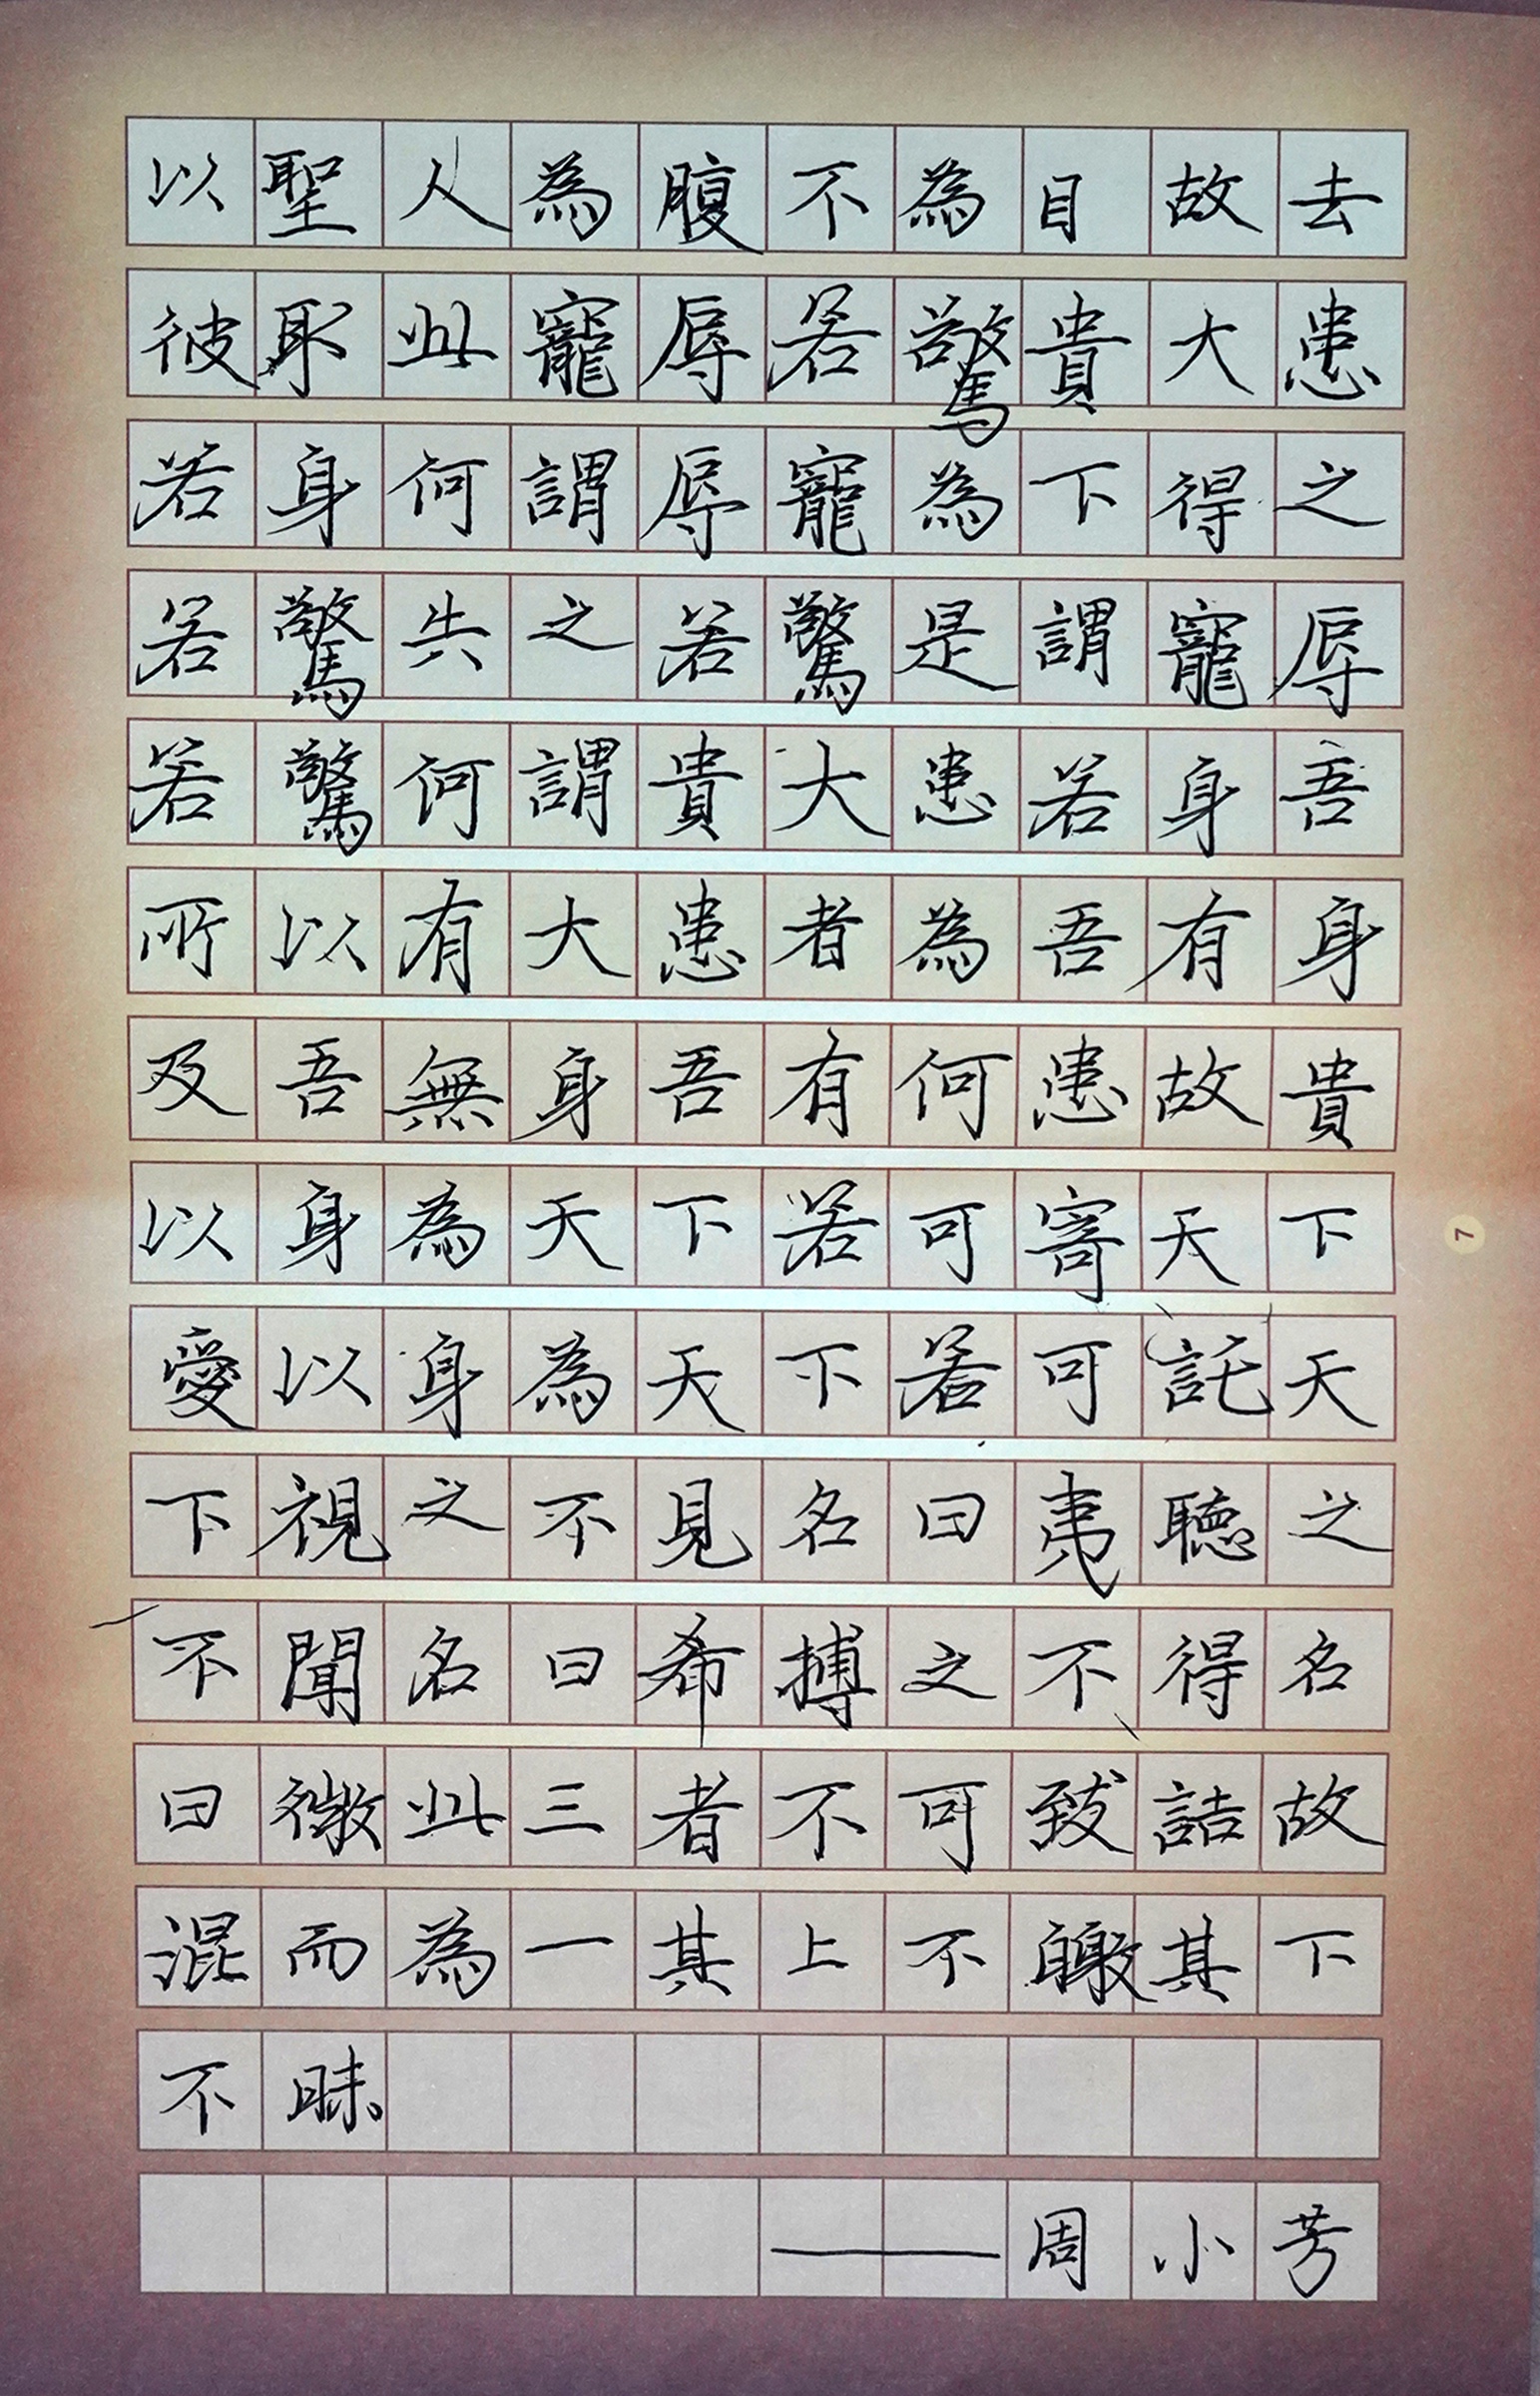 以聖人為腹不為目故去
彼取此寵辱若驚貴大患
若身何謂辱寵為下得之
若驚失之若驚是謂寵辱
若驚何謂貴大患若身吾
所以有大患者為吾有身
及吾無身吾有何患故貴
以身為天下若可寄天下
愛以身為天下若可託天
下視之不見名曰夷聽之
不聞名曰希搏之不得名
曰微此三者不可致詰故
混而為一其上不皦其下
不昧。
——周小芳
7